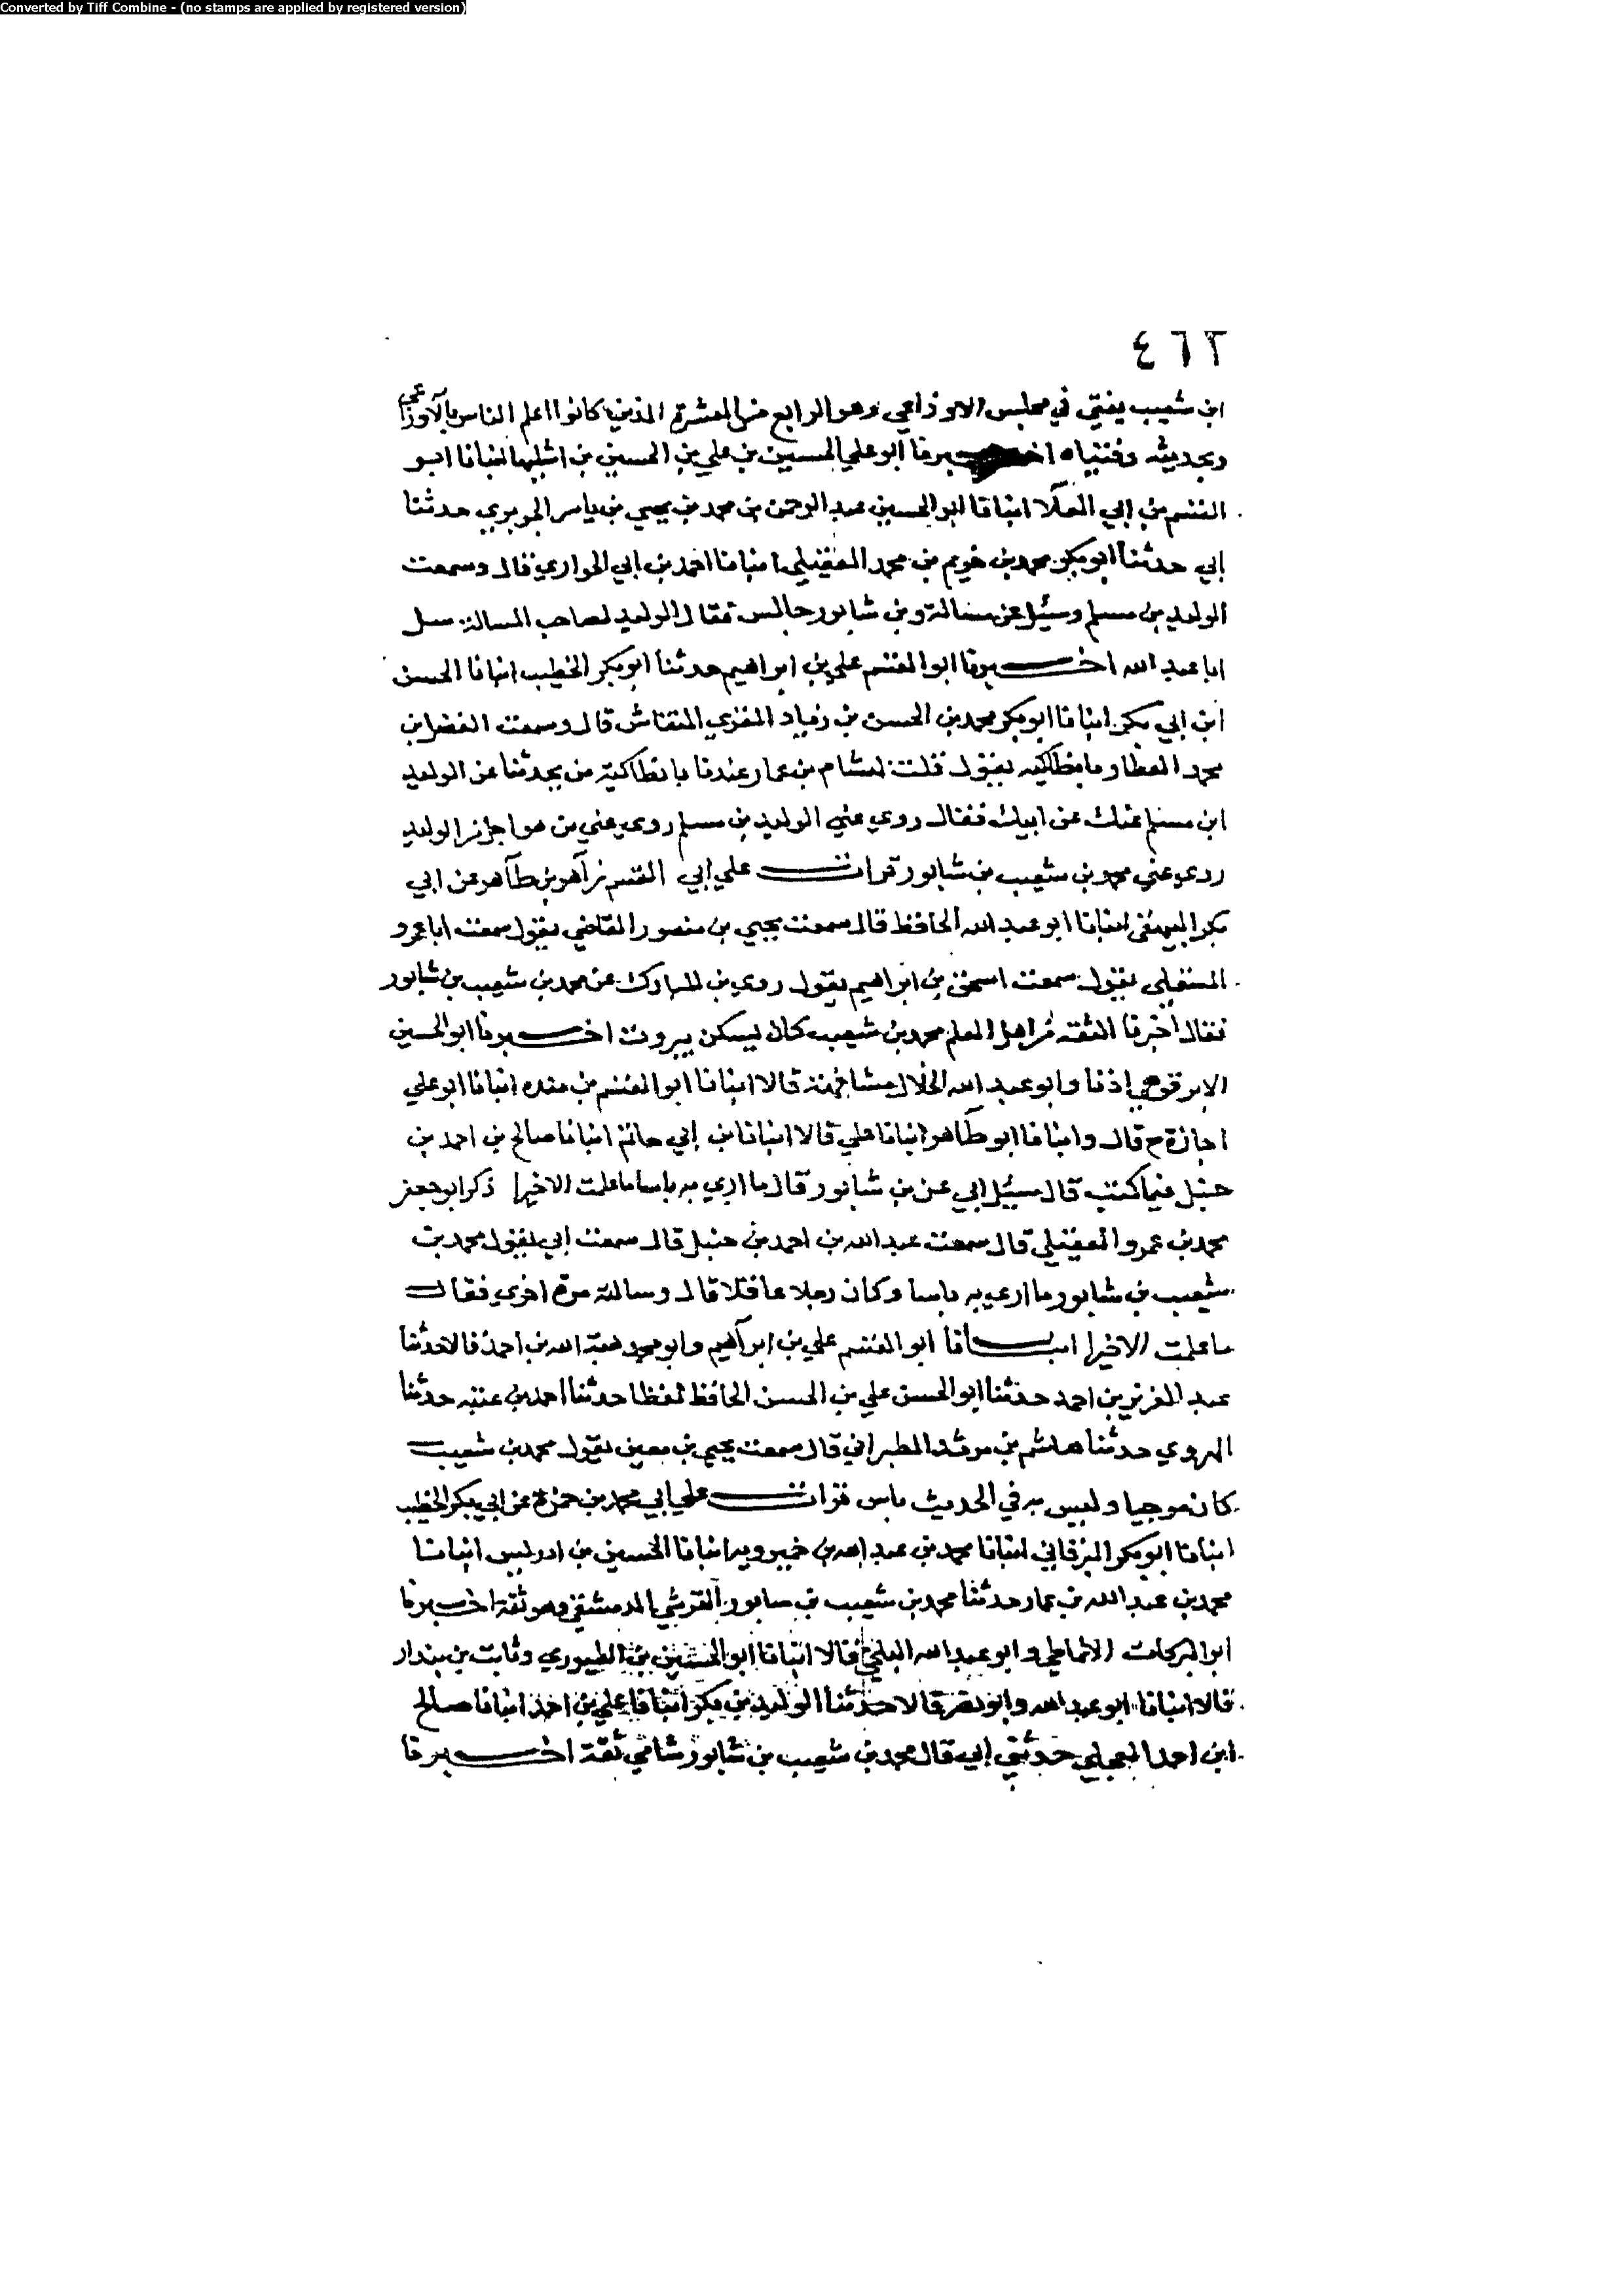 Converted by Tiff Combine - (no stamps are applied by registered version)
٤٦٢
ابن شعيب يفتي في مجلس الاوزاعي وهو الرابع من العشرة الذين كانوا اعلم الناس بالاوزاعي
وبحديثه وفتياه اخبرنا ابو علي الحسين بن علي بن الحسين بن اشليها انبانا ابو
القسم بن ابي العلا انبانا ابو الحسين عبد الرحمن بن محمد بن يحيى بن ياسر الجوبري حدثنا
ابي حدثنا ابو بكر محمد بن خريم بن محمد العقيلي انبانا احمد بن ابي الحواري قال وسمعت
الوليد بن مسلم وسئل عن مسالة وبن شابور جالس فقال الوليد لصاحب المسالة سل
ابا عبد الله اخبرنا ابو القسم علي بن ابراهيم حدثنا ابو بكر الخطيب انبانا الحسن
ابن ابي بكر انبانا ابو بكر محمد بن الحسن بن زياد المقري النقاش قال وسمعت الفضل بن
محمد العطار بانطاكيه يقول قلت لهشام بن عمار عندنا بانطاكية من يحدثنا عن الوليد
ابن مسلم عنك عن ابيك فقال روى عني الوليد بن مسلم روى عني من هو اجل من الوليد
روى عني محمد بن شعيب بن شابور قرات على ابي القسم زاهر بن طاهر عن ابي
بكر البيهقي انبانا ابو عبد الله الحافظ قال سمعت يحيى بن منصور القاضي يقول سمعت ابا عمرو
المستملي يقول سمعت اسحق بن ابراهيم يقول روى بن المبارك عن محمد بن شعيب بن شابور
فقال اخبرنا الثقه من اهل العلم محمد بن شعيب كان يسكن بيروت اخبرنا ابو الحسين
الابرقوهي إذنا وابو عبد الله الخلال مشافهة قالا انبانا ابو القسم بن منده انبانا ابو علي
اجازة ح قال وانبانا ابو طاهر انبانا علي قالا انبانا بن ابي حاتم انبانا صالح بن احمد بن
حنبل فيما كتب قال سئل ابي عن بن شابور قال ما ارى به باسا ما علمت الا خيرا ذكر ابو جعفر
محمد بن عمرو العقيلي قال سمعت عبد الله بن احمد بن حنبل قال سمعت ابي يقول محمد بن
شعيب بن شابور ما ارى به باسا وكان رجلا عاقلا قال وسالته مرة اخرى فقال
ما علمت الا خيرا انبانا ابو القسم علي بن ابراهيم وابو محمد هبة الله بن احمد قالا حدثنا
عبد العزيز بن احمد حدثنا ابو الحسن علي بن الحسن الحافظ لفظا حدثنا احمد بن عتبه حدثنا
الهروي حدثنا هاشم بن مرثد الطبراني قال سمعت يحيى بن معين يقول محمد بن شعيب
كان مرجيا وليس به في الحديث باس قرات على ابي محمد بن حمزة عن ابي بكر الخطيب
انبانا ابو بكر البرقاني انبانا محمد بن عبد الله بن خميرويه انبانا الحسين بن ادريس انبانا
محمد بن عبد الله بن عمار حدثنا محمد بن شعيب بن سابور القرشي الدمشقي وهو ثقة اخبرنا
ابو البركات الانماطي وابو عبد الله البلخي قالا انبانا ابو الحسين بن الطيوري وثابت بن بندار
قالا انبانا ابو عبد الله وابو نصر قالا حدثنا الوليد بن بكر انبانا علي بن احمد انبانا صالح
ابن احمد العجلي حدثني ابي قال محمد بن شعيب بن شابور شامي ثقة اخبرنا